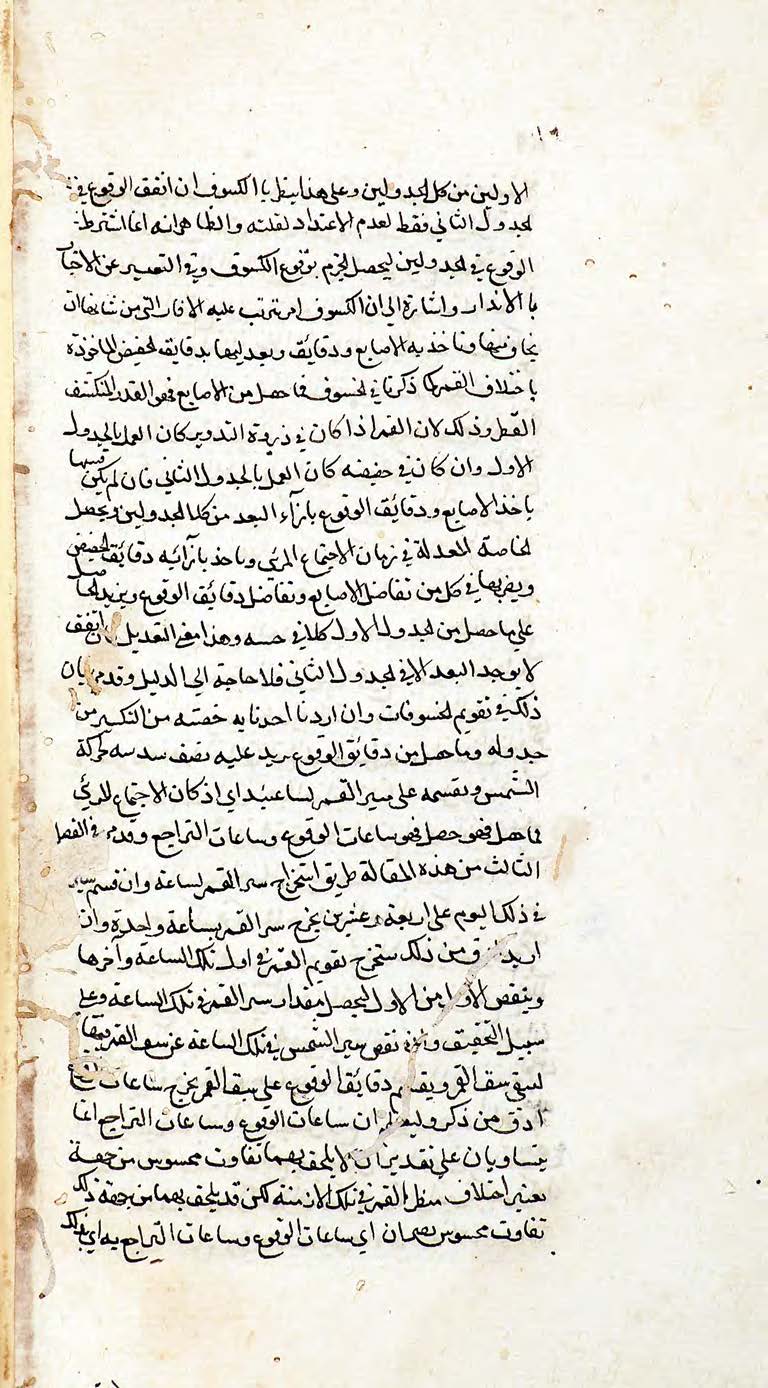 الاولين من كل الجدولين وعلى هذا يبطل بالكسوف ان اتفق الوقوع في
الجدول الثاني فقط لعدم الاعتداد لقلته والظاهرانه انما اشترط
الوقوع في الجدولين ليحصل الجزم بوقوع الكسوف وفي التعبير عن الاخبار
بالانذار واشارة الى ان الكسوف امر يترتب عليه الافات التي من شانها ان
يخاف منها وناخذ به الاصابع ودقايق وبعد ليها بدقايق الحضيض الماخوذة
باختلاف القمر كما ذكرنا في الخسوف فما حصل من الاصابع فهو القدر المنكسف
القطر وذلك لان القمر اذا كان في ذروة التدوير كان العمل بالجدول
الاول وان كان في حضيضه كان العمل بالجدول الثاني فان لم يكن فيهما
ياخذ الاصابع ودقايق الوقوع بازآء البعد من كلا الجدولين ويحصل
الخاصة المعدلة في زمان الاجتماع المرئي وياخذ بازائه دقايق الحضيض
ويضربها في كل من تفاضل الاصابع وتفاضل دقايق الوقوع ويزيد الحاصل
على ما حصل من الجدول الاول كلا في جنسه وهذا معنى التعديل اتفق
لا يوجد البعد الا في الجدول الثاني فلا حاجة الى الدليل وقدم بيان
ذلك في تقويم الخسوفات وان اردنا اخذنا به حصته من التكسير من
جدوله وما حصل من دقايق الوقوع يزيد عليه نصف سدسه لحركة
الشمس ونقسمه على سير القمر لساعتئذ اي اذ كان الاجتماع المرئي
فما حصل فهو حصل فهو ساعات الوقوع وساعات التراجع وقدم في الفصل
الثالث من هذه المقالة طريق استخراج سير القمر لساعة وان قسم سير
في ذلك اليوم على اربعة وعشرين يخرج سير القمر بساعة واحدة وان
اريد من ذلك ستخرج تقويم القمر في اول تلك الساعة وآخرها
وينقص الاول من الاول ليحصل مقدار سير القمر في تلك الساعة وعلى
سبيل التحقيق نقص سير الشمس في تلك الساعة عن سبق القمر
ليبقى سبق القمر ويقسم دقايق الوقوع على سبق القمر يخرج ساعات
ادق من ذكر وليعلم ان ساعات الوقوع وساعات التراجع انما
يتساويان على تقدير ان لا يلحق بهما تفاوت محسوس من جهة
تغير اختلاف منظر القمر في تلك الازمنة لكن قد يلحق بهما من جهة ذلك
تفاوت محسوس اي ساعات الوقوع وساعات التراجع به اي بذلك